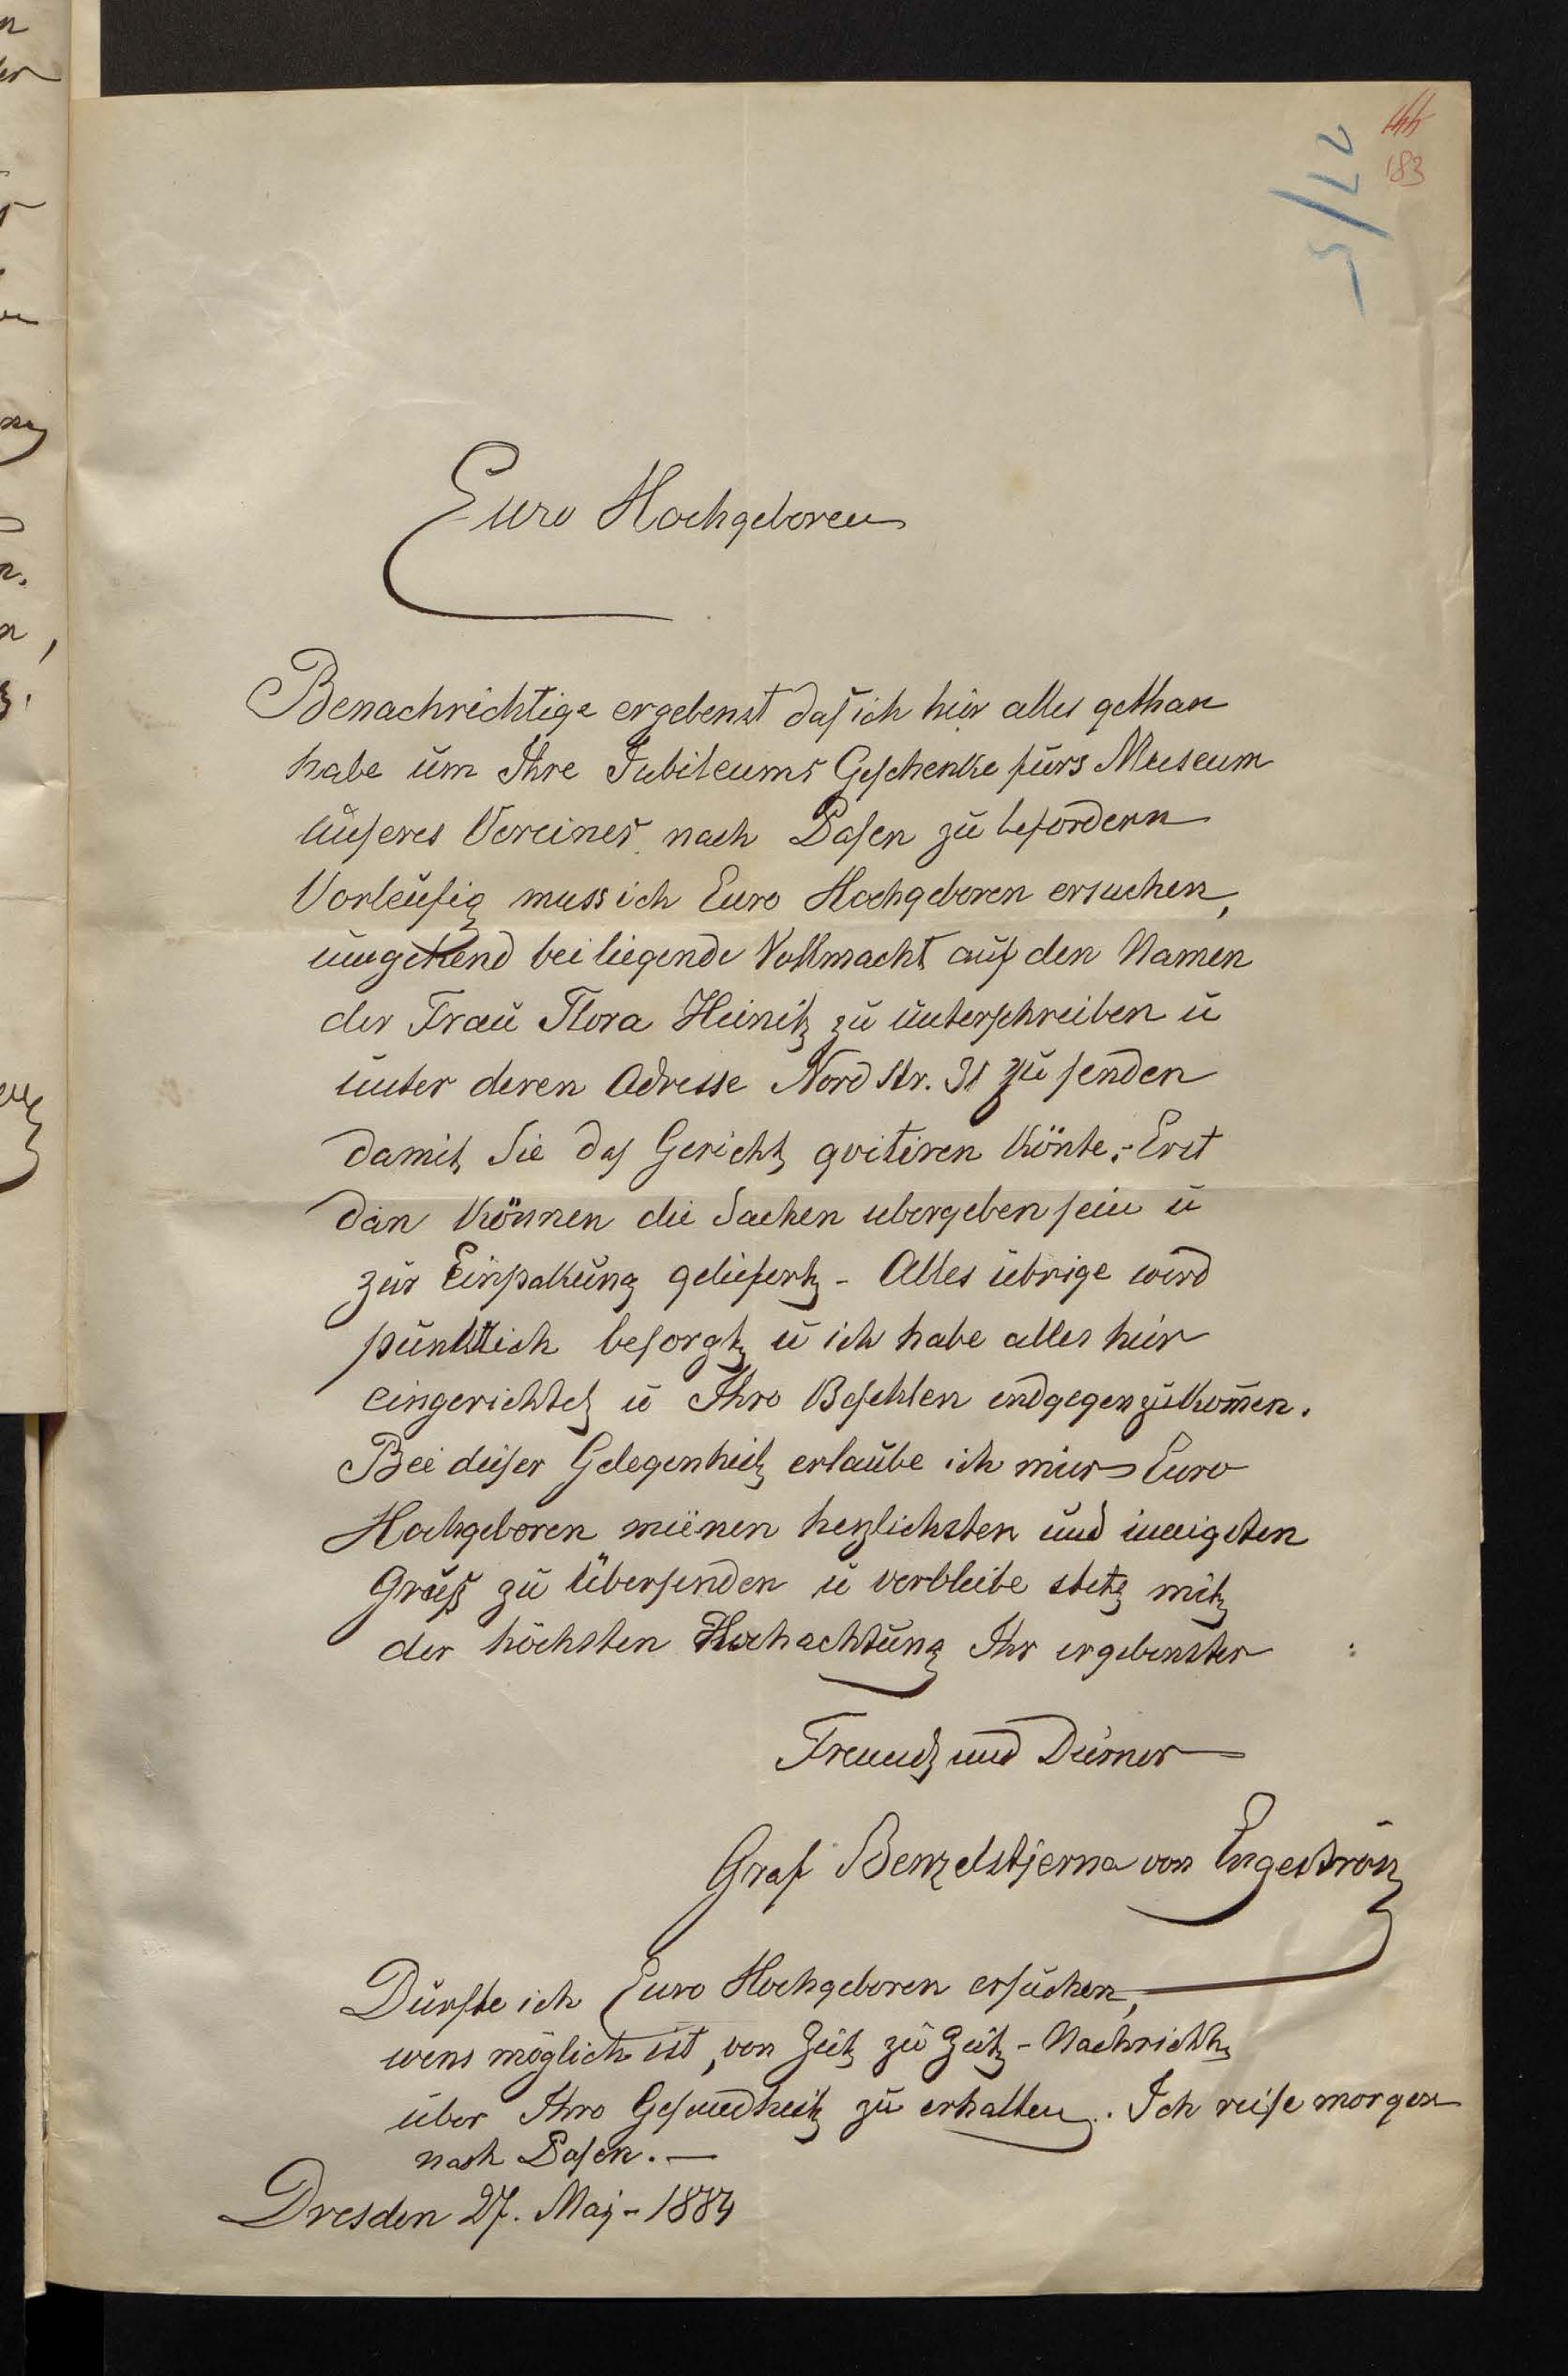 183
27/5
Euro Hochgeboren
Benachrichtige ergebenst daß ich hier alles gethan
habe um Ihre Jubileums Geschenke fürs Museum
unseres Vereines nach Posen zu befordern
Vorleufig muss ich Euro Hochgeboren ersuchen,
umgehend bei liegende Vollmacht auf den Namen
der Frau Flora Heinitz zu unterschreiben u
unter deren Adresse Nord str. 31 zu senden
damit Sie das Gericht qvitiren könte. - Erst
dan können die Sachen ubergeben sein u
zur Einpakung geliefert - Alles übrige wird
pünktlich besorgt u ich habe alles hier
eingerichtet u Ihro Befehlen endgegenzukom̄en.
Bei dieser Gelegenheit erlaube ich mir Euro
Hochgeboren meinen herzlichsten und innigsten
Gruß zu übersenden u verbleibe stets mit
der höchsten Hochachtung Ihr ergebenster
Freund und Diener
Graf Benzelstjerna von Engeström
Dürfte ich Euro Hochgeboren ersuchen,
wens möglich ist, von Zeit zu Zeit - Nachricht
über Ihro Gesundheit zu erhalten. Ich reise morgen
nach Posen. —
Dresden 27. Maj - 1884